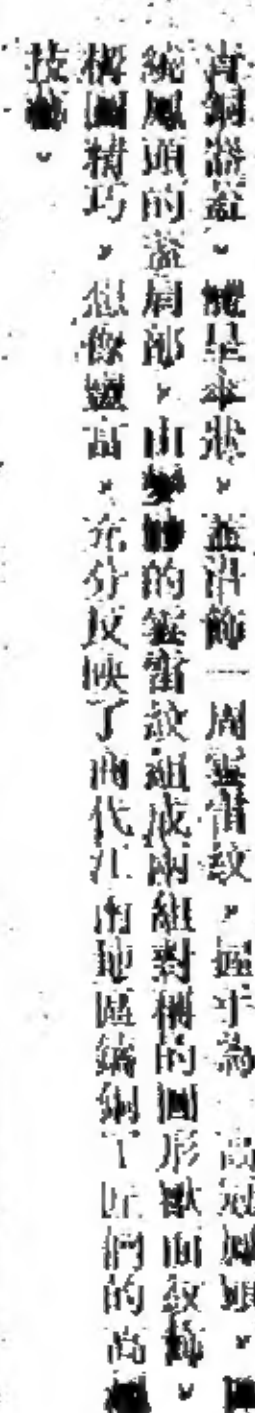 青銅器蓋。體呈傘狀，蓋沿飾一周雲雷紋，握手為 高冠鳳頭，圍
繞鳳頭的蓋周部，由變 的雲雷紋組成兩組對稱的圓形獸面紋飾，
構圖精巧，想像豐富，充分反映了商代江南地區鑄銅工匠們的高超
技藝。